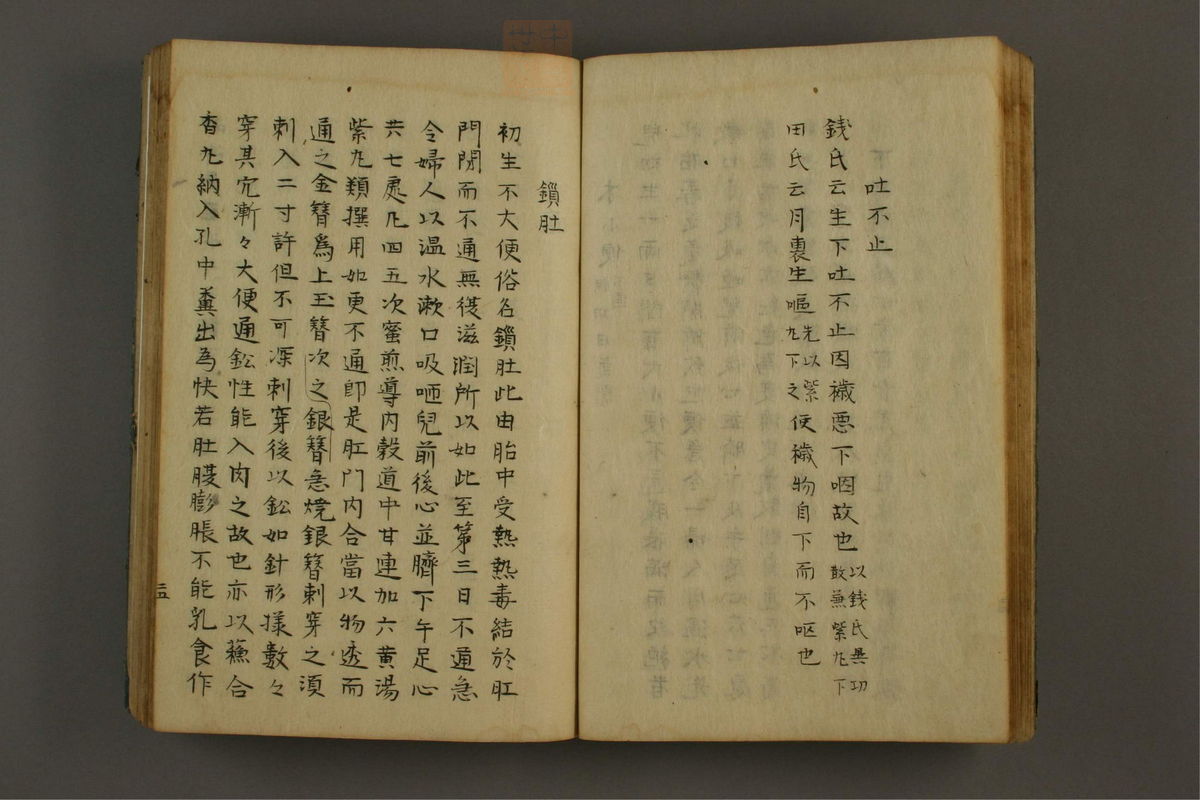 吐不止
錢氏云生下吐不止因穢悪下咽故也以錢氏異功散兼紫丸下
田氏云月裏生嘔先以紫丸下之使穢物自下而不呕也
鎖肚
初生不大便俗名鎖肚此由胎中受熱熱毒結於肛
門閉而不通無復滋潤所以如此至第三日不通急
令婦人以温水漱口吸咂兒前後心並臍下午足心
共七處凡四五次蜜煎導内穀道中甘連加六黄湯
紫丸類撰用如更不通即是肛門内合當以物透而
通之金簪爲上玉簪次之銀簪急燒銀簪刺穿之須
刺入二寸許但不可深刺穿後以鈆如針形揉數々
穿其穴漸々大便通鈆性能入肉之故也亦以蘓合
香丸納入孔中糞出為快若肚腹膨脹不能乳食作